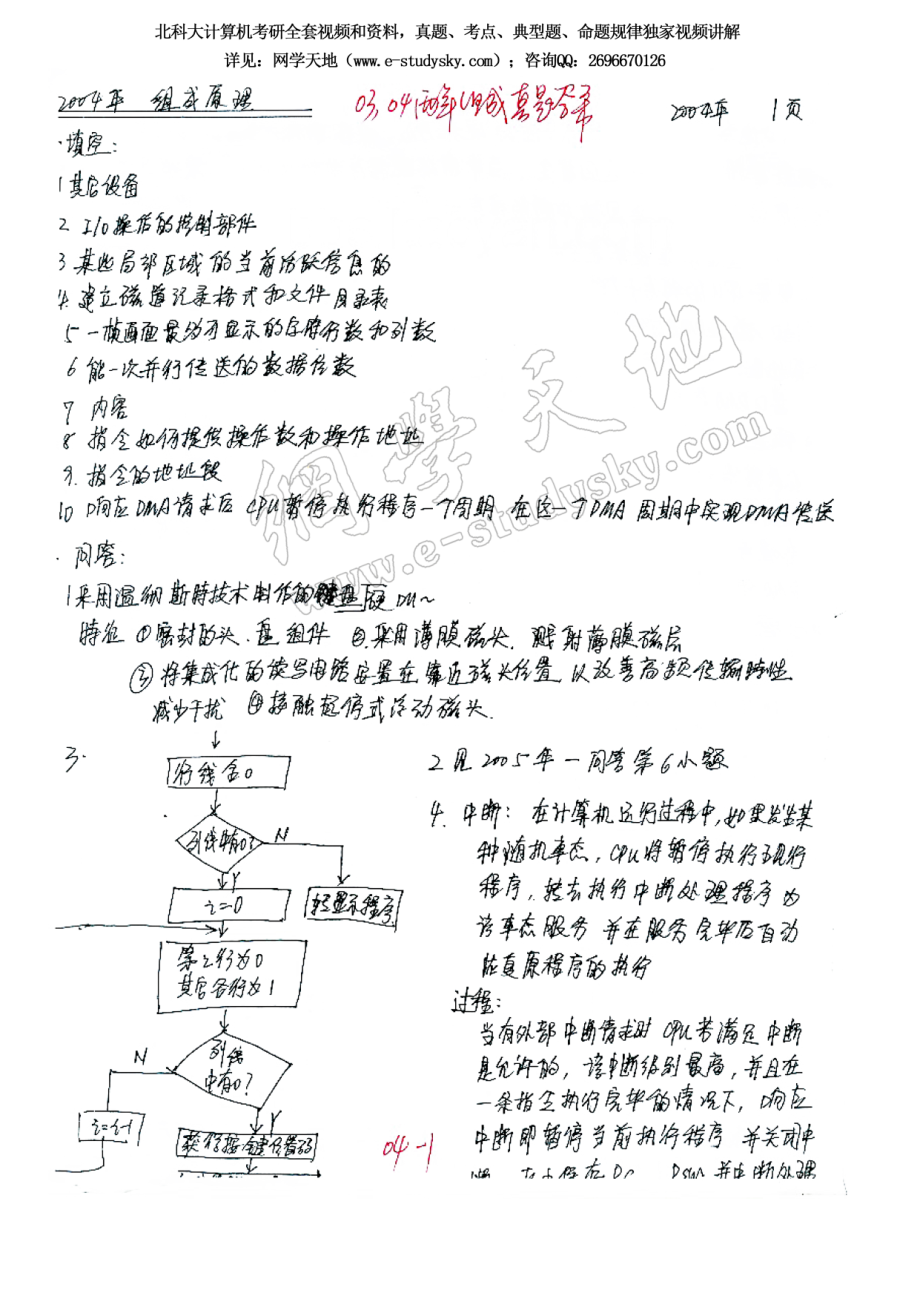 北科大计算机考研全套视频和资料，真题、考点、典型题、命题规律独家视频讲解
详见：网学天地（www.e-studysky.com）；咨询QQ：2696670126
2004年 组成原理
03,04两年组成真题答案
2004年 1页
·填空：
1 其它设备
2 I/O操作的控制部件
3 某些局部区域的当前活跃信息的
4. 建立磁道记录格式和文件目录表
5 一帧画面最多可显示的字符行数和列数
6 能一次并行传送的数据位数
7 内容
8 指令如何提供操作数和操作地址
9. 指令的地址段
10 响应DMA请求后 CPU暂停执行程序一个周期 在这一个DMA周期中实现DMA传送
網學天地
www.e-studysky.com
·问答：
1 采用温彻斯特技术制作的硬
特征 ①密封的头、盘组件 ②采用薄膜磁头、溅射薄膜磁层
③将集成化的读写电路安置在靠近磁头位置 以改善高频传输特性
减少干扰 ④接触起停式浮动磁头.
3.
行线全0
列线中有0?
N
Y
i=0
转显示程序
第i行为0
其它各行为1
列线
中有0?
N
Y
i=i-1
获行按键位置码
2 见2005年一问答第6小题
4. 中断：在计算机运行过程中,如果发生某
种随机事态，CPU将暂停执行现行
程序，转去执行中断处理程序为
该事态服务 并在服务完毕后自动
恢复原程序的执行
过程：
当有外部中断请求时 CPU若满足中断
是允许的，该中断级别最高，并且在
一条指令执行完毕的情况下，响应
中断即暂停当前执行程序 并关闭中
04-1